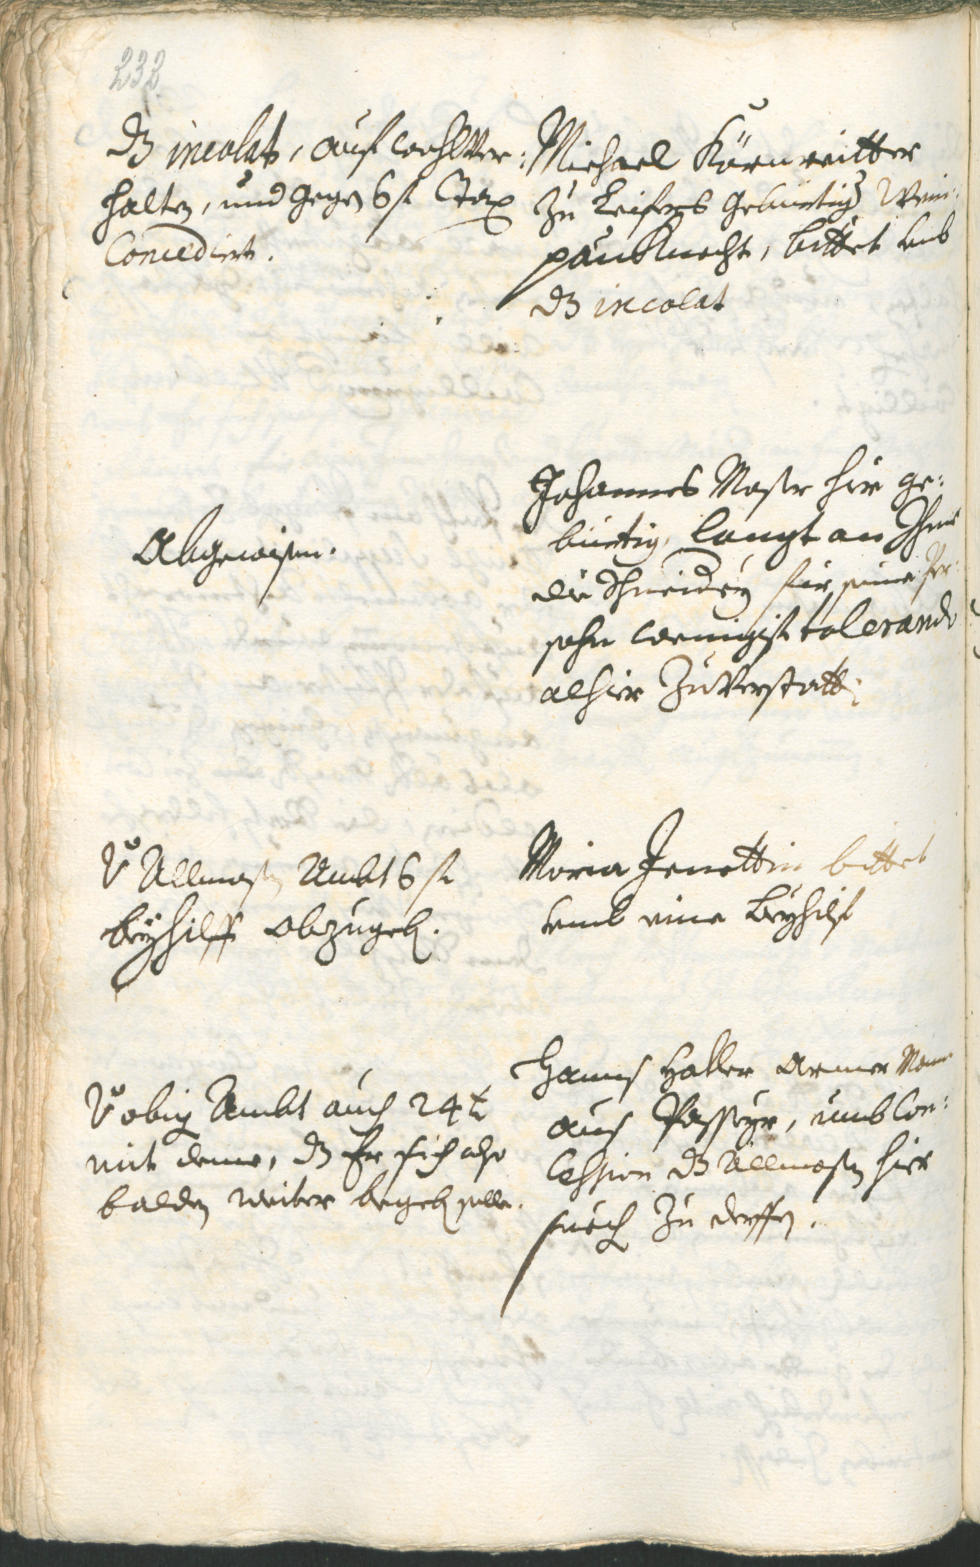 232
dz incolat, auf wohlver:
halten, und gegen 6 f Tax
Concediert.
Michael Kärnreitter
zu Leifers gebürtig Wein:
pauknecht, bittet umb
dz incolat
Abgewisen.
Johannes Moser hir ge:
bürtig, langt an Ihme
die Schneidery für seine Per:
sohn wenigist tolerando
alhier zuverstatt:
V Allmosen Ambt 6 f
beyhilff abzugeb.
Maria Jenettin bittet
umb eine Beyhilf
V obig Ambt auch 24 x
mit deme, dz Er sich also
balden weiter begeb solle.
Hanns Haller armer Mann
aus Passeyr, umb Con:
cession dz Allmosen hier
such zu derffen.